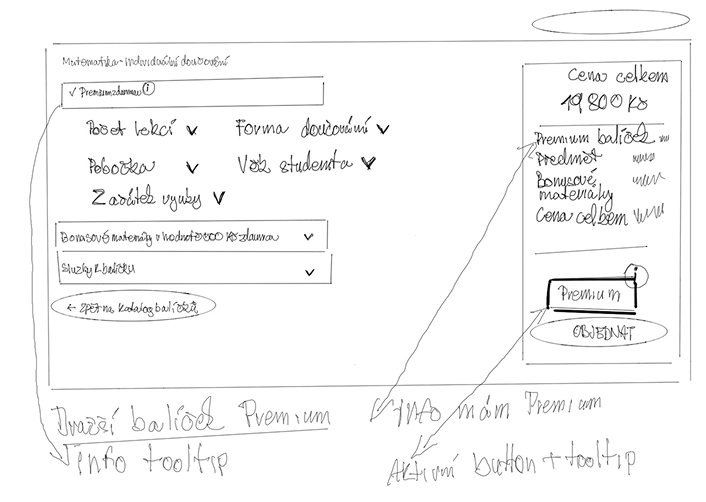 Matematika - individuální doučování
✓ Premium zdarma i
Počet lekcí ✓ Forma doučování ✓
Pobočka ✓ Věk studenta ✓
Začátek výuky ✓
Bonusové materiály v hodnotě 000 Kč zdarma ✓
Služby k balíčku ✓
← Zpět na katalog balíčků
Cena celkem
19 800 Kč
Premium balíček
Předmět
Bonusové
materiály
Cena celkem
i
Premium
OBJEDNAT
Dražší balíček Premium
info tooltip
info mám Premium
Aktivní button + tooltip